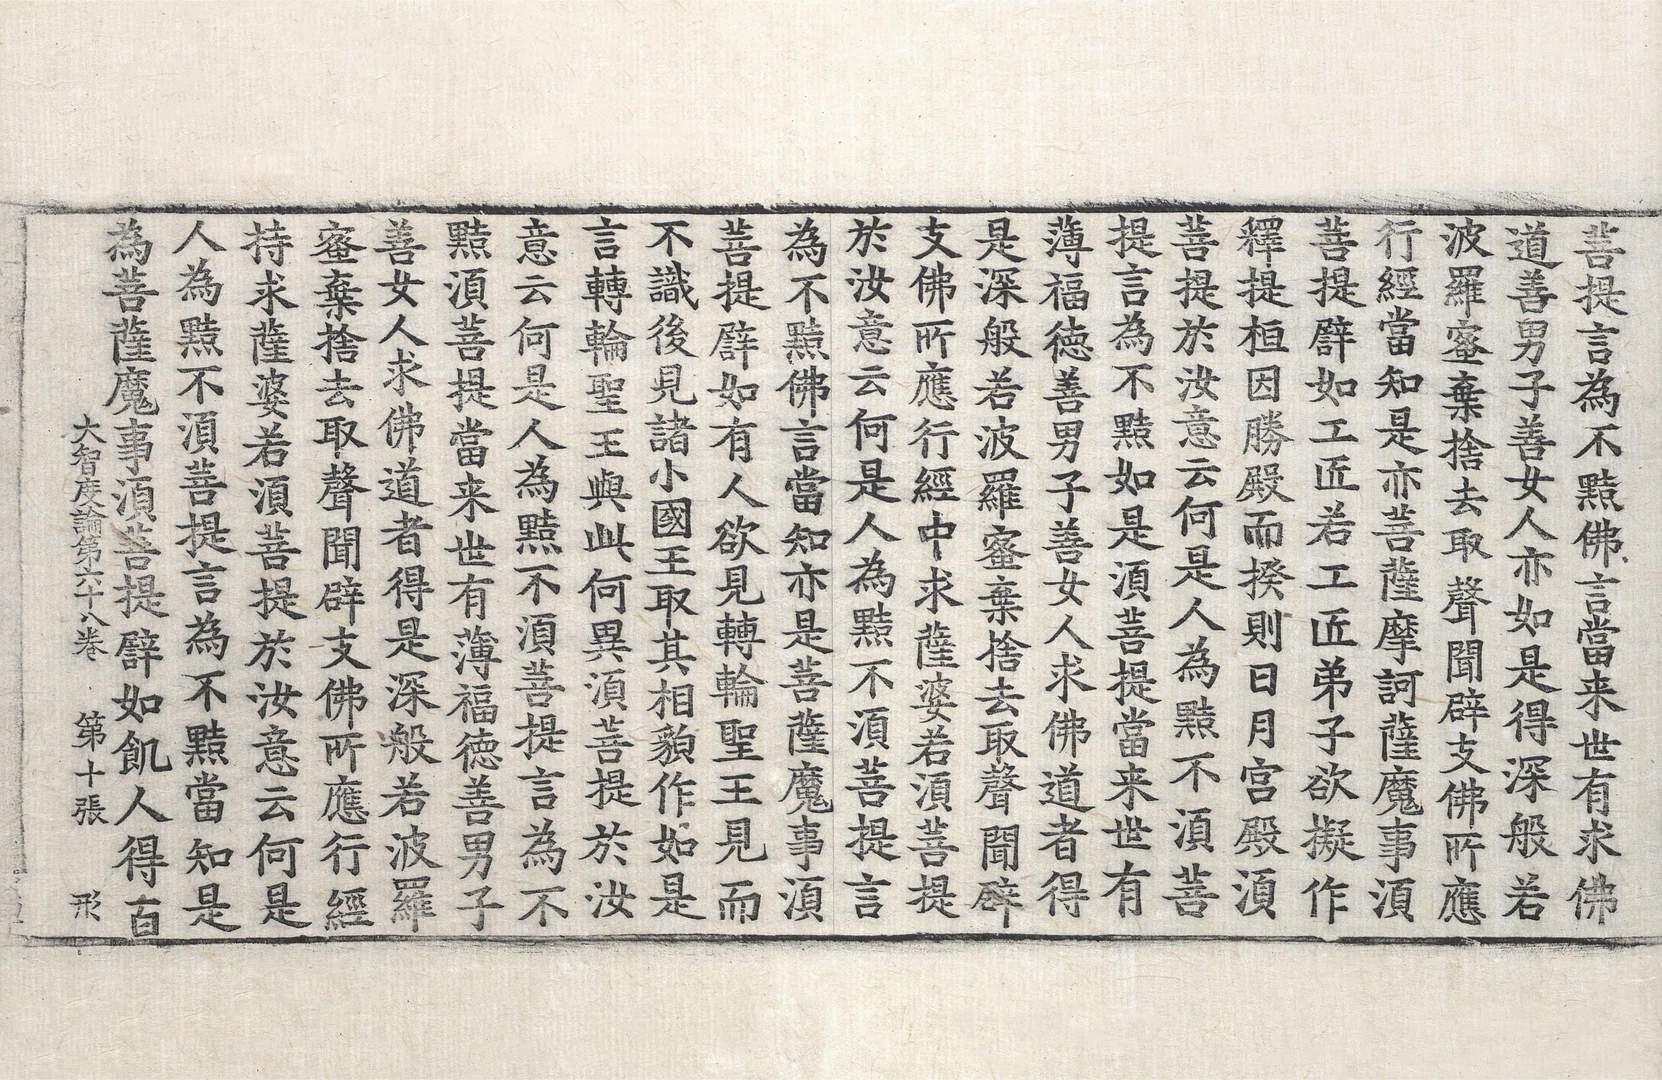 菩提言為不黠佛言當来世有求佛
道善男子善女人亦如是得深般若
波羅蜜棄捨去取聲聞辟支佛所應
行經當知是亦菩薩摩訶薩魔事湏
菩提譬如工匠若工匠弟子欲擬作
釋提桓因勝殿而揆則日月宮殿湏
菩提於汝意云何是人為黠不湏菩
提言為不黠如是湏菩提當来世有
薄福德善男子善女人求佛道者得
是深般若波羅蜜棄捨去取聲聞辟
支佛所應行經中求薩婆若湏菩提
於汝意云何是人為黠不湏菩提言
為不黠佛言當知亦是菩薩魔事湏
菩提譬如有人欲見轉輪聖王見而
不識後見諸小國王取其相貌作如是
言轉輪聖王與此何異湏菩提於汝
意云何是人為黠不湏菩提言為不
黠湏菩提當来世有薄福德善男子
善女人求佛道者得是深般若波羅
蜜棄捨去取聲聞辟支佛所應行經
持求薩婆若湏菩提於汝意云何是
人為黠不湏菩提言為不黠當知是
為菩薩魔事湏菩提譬如飢人得百
大智度論第六十八卷 第十張 形